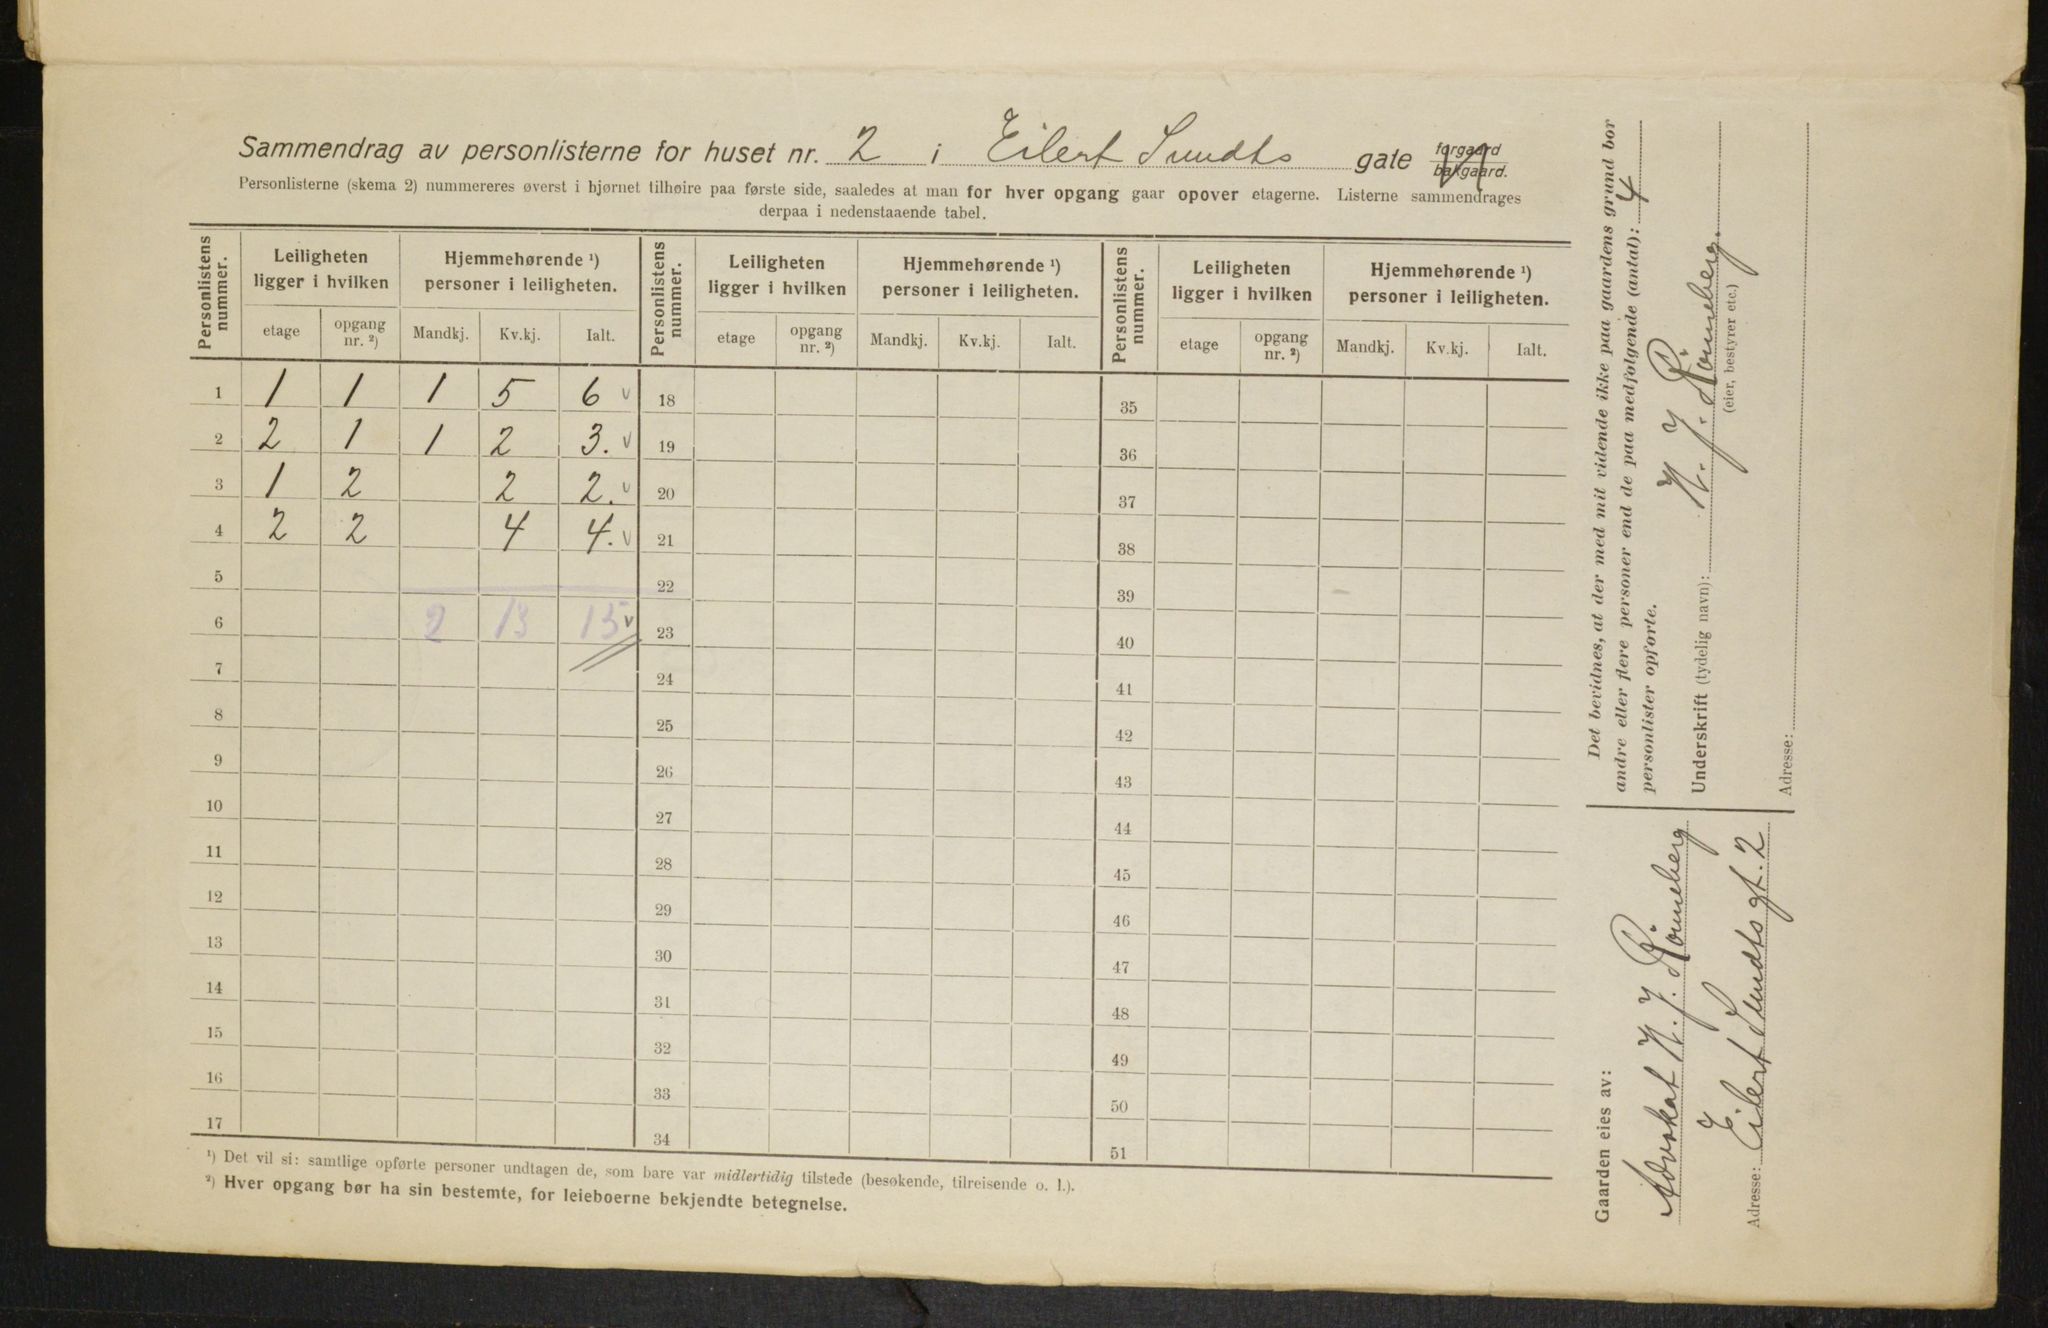 Sammendrag av personlisterne for huset nr. 2 i Eilert Sundts gate forgaard bakgaard.
Personlisterne (skema 2) nummereres øverst i bjørnet tilhøire paa første side, saaledes at man for hver opgang gaar opover etagerne. Listerne sammendrages
derpaa i nedenstaaende tabel.
Personlistens nummer. Leiligheten ligger i hvilken Hjemmehørende ¹) personer i leiligheten. Personlistens nummer. Leiligheten ligger i hvilken Hjemmehørende ¹) personer i leiligheten. Personlistens nummer. Leiligheten ligger i hvilken Hjemmehørende ¹) personer i leiligheten.
etage opgang nr. ²) Mandkj. Kv.kj. Ialt. etage opgang nr. ²) Mandkj. Kv.kj. Ialt. etage opgang nr. ²) Mandkj. Kv.kj. Ialt.
1 1 1 1 5 6 v 18 35
2 2 1 1 2 3. v 19 36
3 1 2 2 2. v 20 37
4 2 2 4 4. v 21 38
5 22 39
6 2 13 15 v 23 40
7 24 41
8 25 42
9 26 43
10 27 44
11 28 45
12 29 46
13 30 47
14 31 48
15 32 49
16 33 50
17 34 51
¹) Det vil si: samtlige opførte personer undtagen de, som bare var midlertidig tilstede (besøkende, tilreisende o. l.).
²) Hver opgang bør ha sin bestemte, for leieboerne bekjendte betegnelse.
Det bevidnes, at der med mit vidende ikke paa gaardens grund bor
andre eller flere personer end de paa medfølgende (antal): 4
personlister opførte.
Underskrift (tydelig navn): N. J. Römeberg.
(eier, bestyrer etc.)
Adresse:
Gaarden eies av:
Advokat N. J. Römeberg
Adresse: Eilert Sundts gt. 2